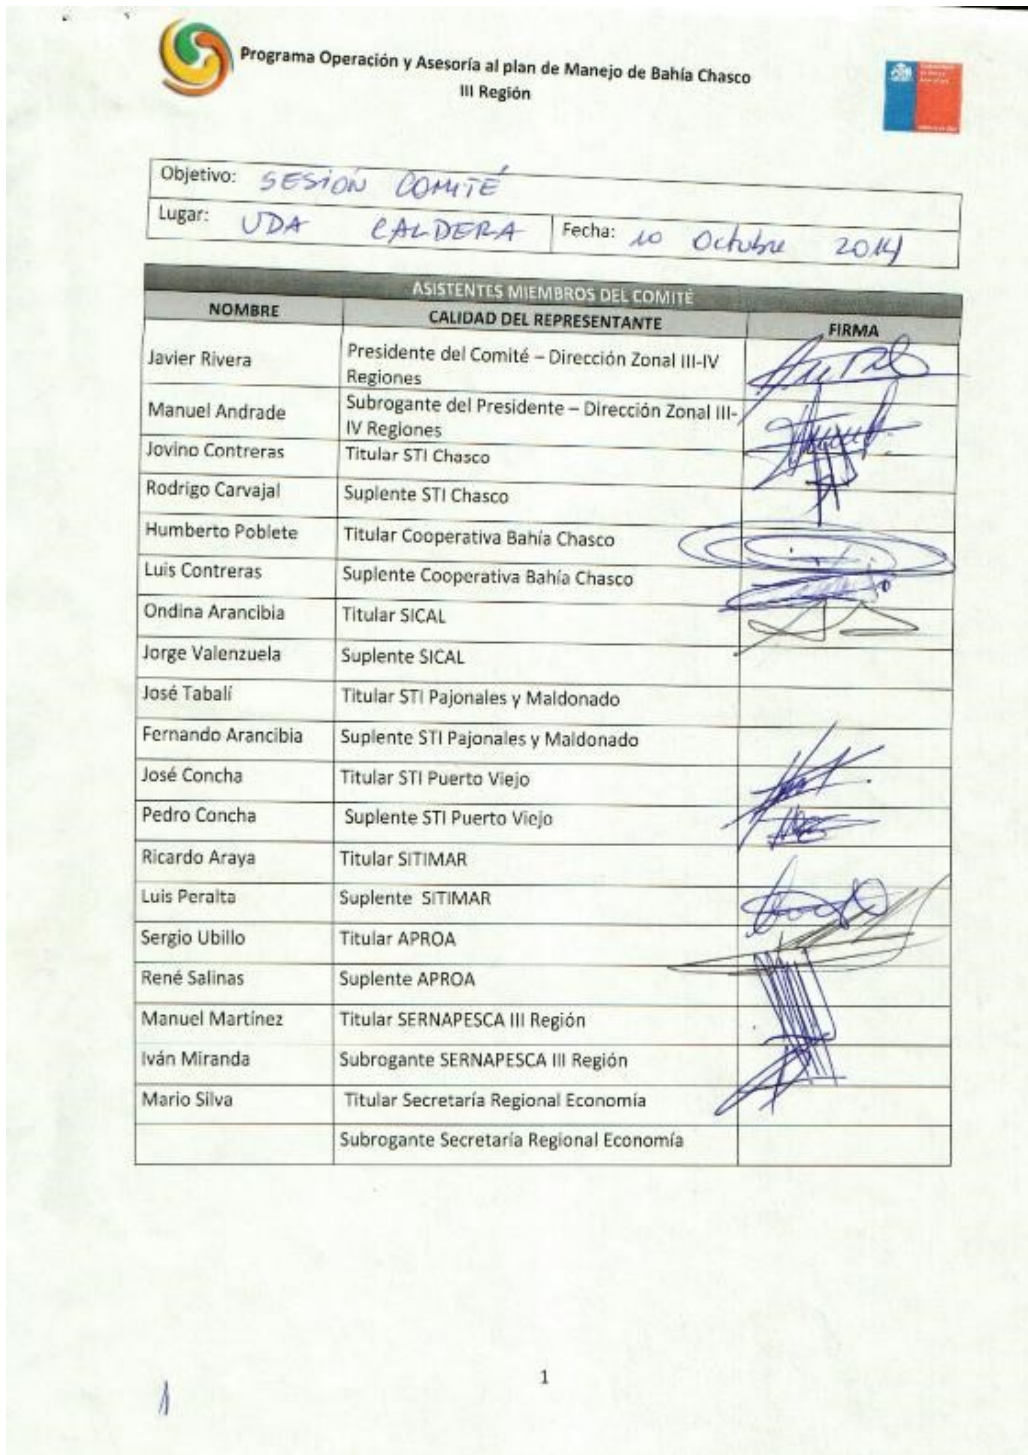 Programa Operación y Asesoría al plan de Manejo de Bahía Chasco
III Región
Objetivo: SESIÓN COMITÉ
Lugar: UDA CALDERA Fecha: 10 Octubre 2014
ASISTENTES MIEMBROS DEL COMITÉ
NOMBRE CALIDAD DEL REPRESENTANTE FIRMA
Javier Rivera Presidente del Comité – Dirección Zonal III-IV
Regiones
Manuel Andrade Subrogante del Presidente – Dirección Zonal III-
IV Regiones
Jovino Contreras Titular STI Chasco
Rodrigo Carvajal Suplente STI Chasco
Humberto Poblete Titular Cooperativa Bahía Chasco
Luis Contreras Suplente Cooperativa Bahía Chasco
Ondina Arancibia Titular SICAL
Jorge Valenzuela Suplente SICAL
José Tabalí Titular STI Pajonales y Maldonado
Fernando Arancibia Suplente STI Pajonales y Maldonado
José Concha Titular STI Puerto Viejo
Pedro Concha Suplente STI Puerto Viejo
Ricardo Araya Titular SITIMAR
Luis Peralta Suplente SITIMAR
Sergio Ubillo Titular APROA
René Salinas Suplente APROA
Manuel Martínez Titular SERNAPESCA III Región
Iván Miranda Subrogante SERNAPESCA III Región
Mario Silva Titular Secretaría Regional Economía
Subrogante Secretaría Regional Economía
1